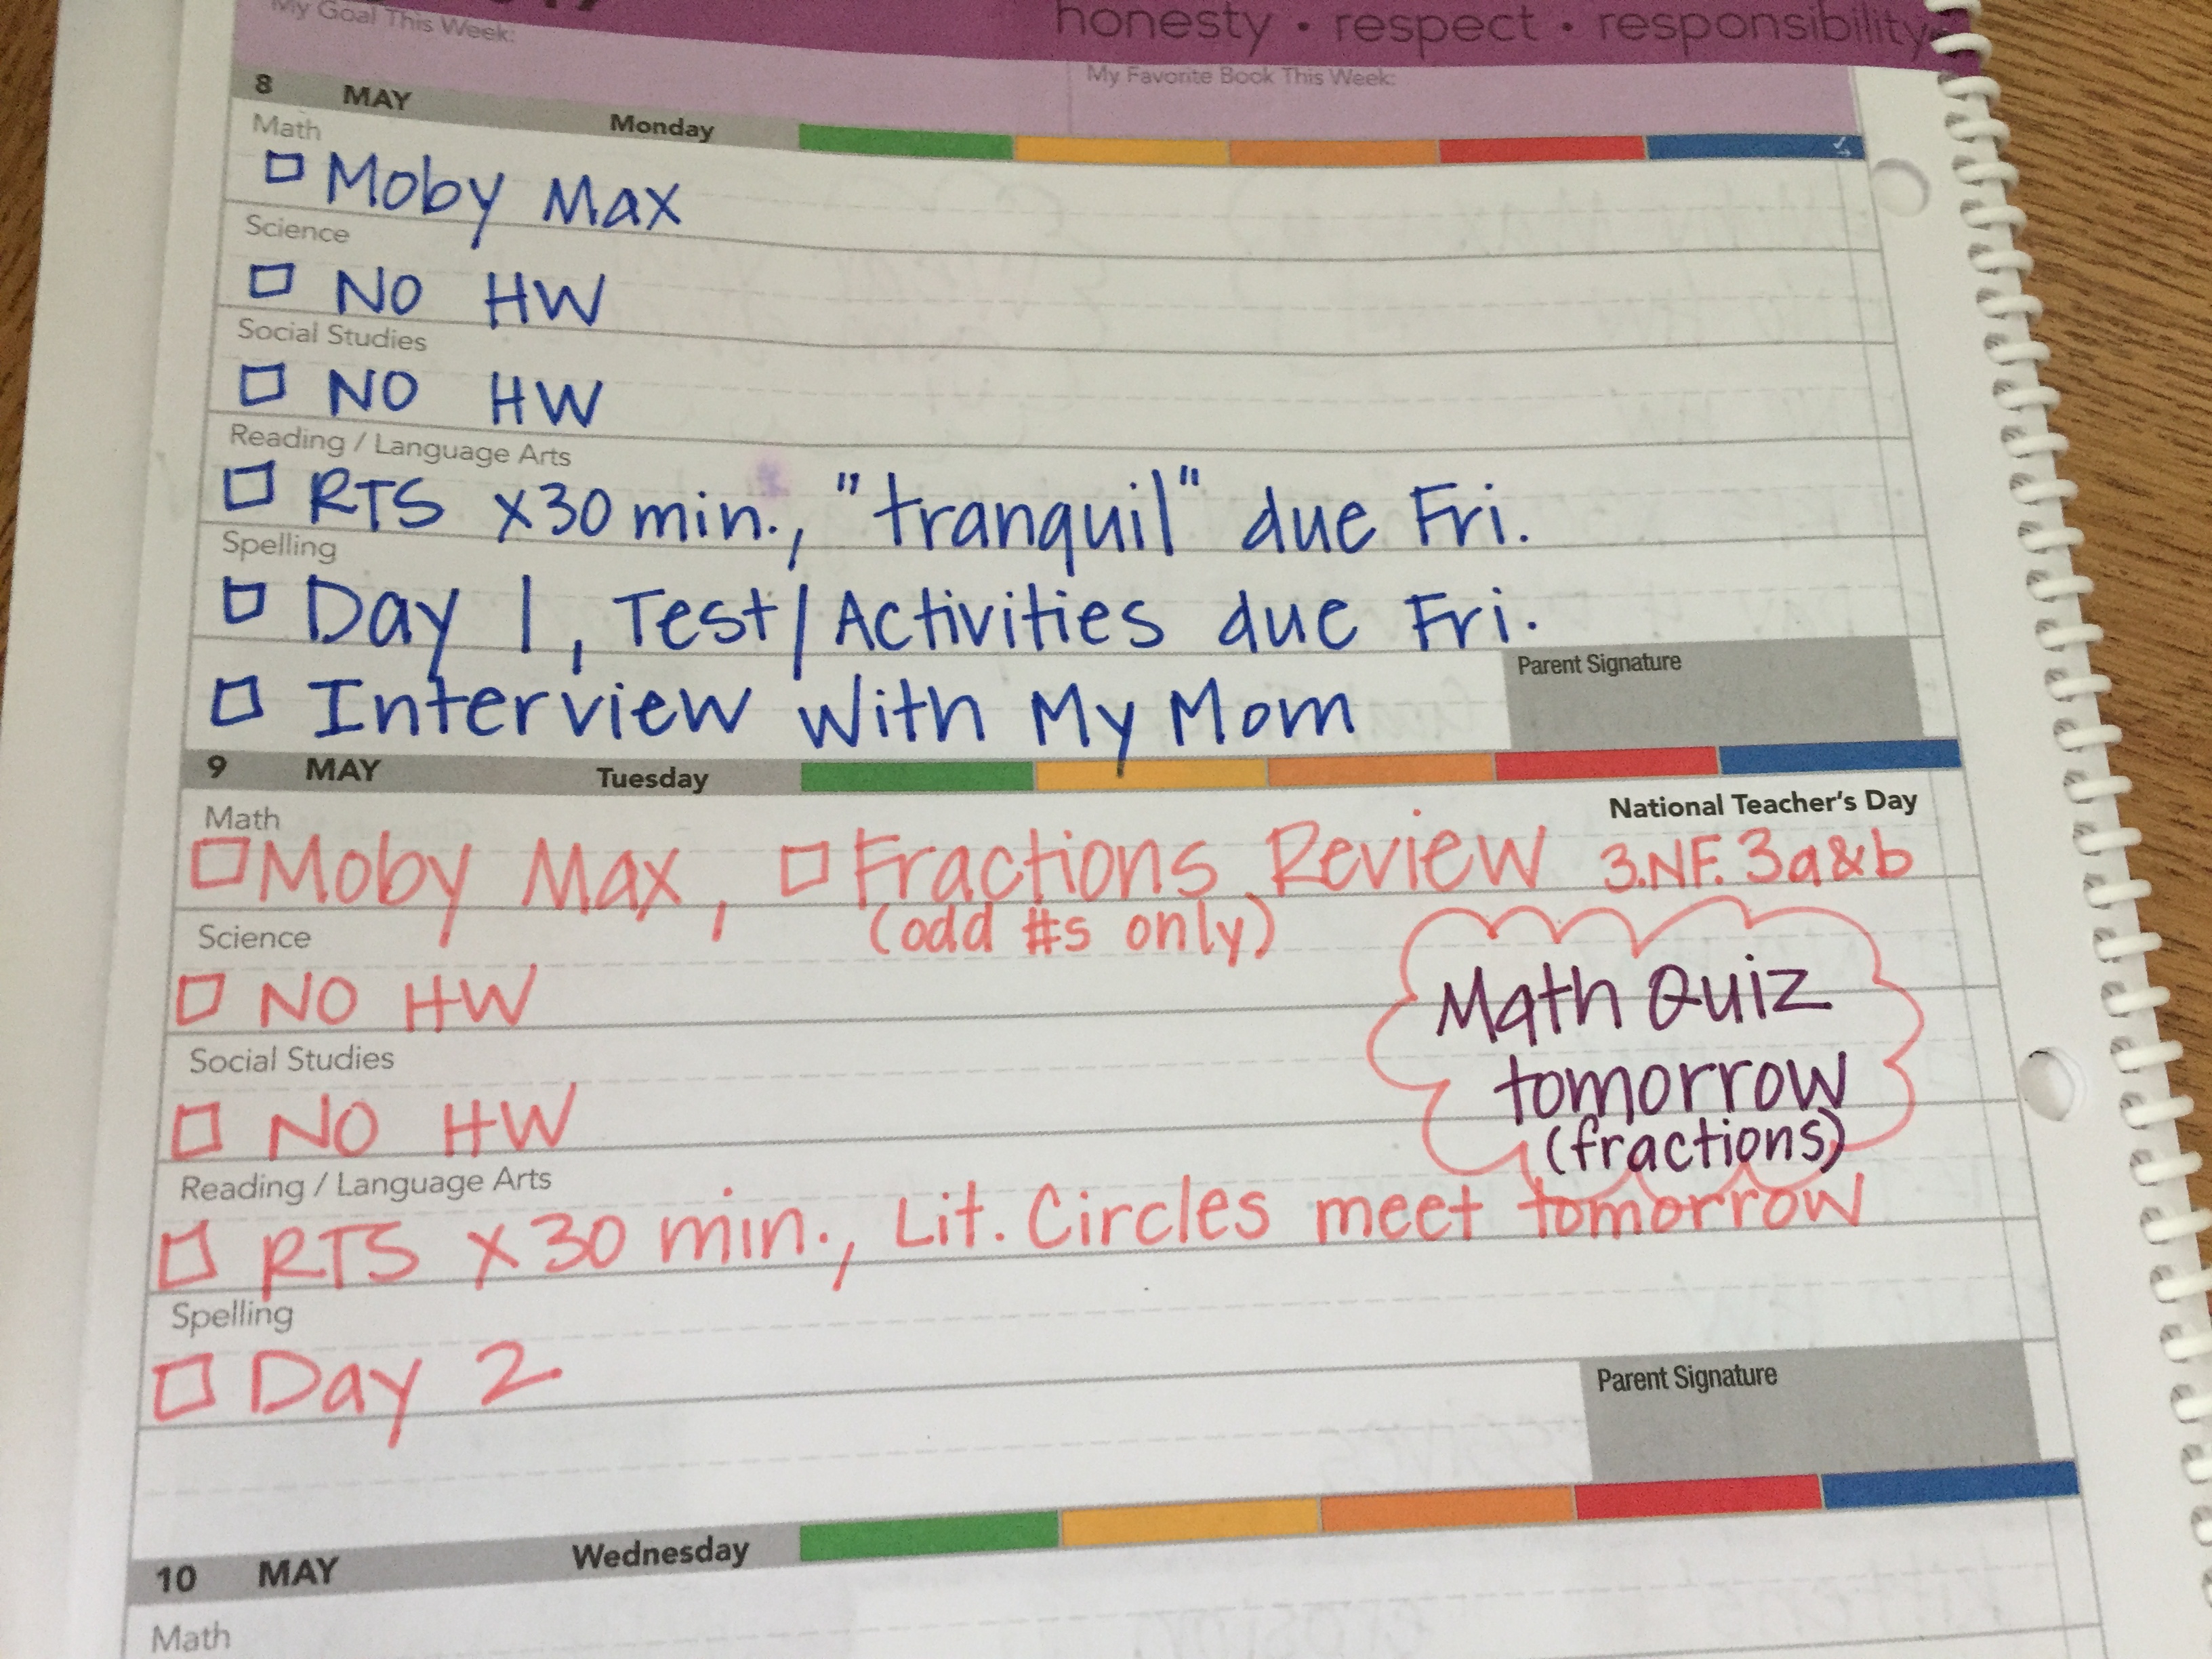 My Goal This Week:
honesty • respect • responsibility
My Favorite Book This Week:
8 MAY Monday
Math
Moby Max
Science
NO HW
Social Studies
NO HW
Reading / Language Arts
RTS x30 min., "tranquil" due Fri.
Spelling
Day 1, Test/Activities due Fri.
Parent Signature
Interview With My Mom
9 MAY Tuesday
National Teacher's Day
Math
Moby Max, Fractions Review 3.NF.3a&b
(odd #s only)
Science
NO HW
Math Quiz
tomorrow
(fractions)
Social Studies
NO HW
Reading / Language Arts
RTS x30 min., Lit. Circles meet tomorrow
Spelling
Day 2
Parent Signature
10 MAY Wednesday
Math